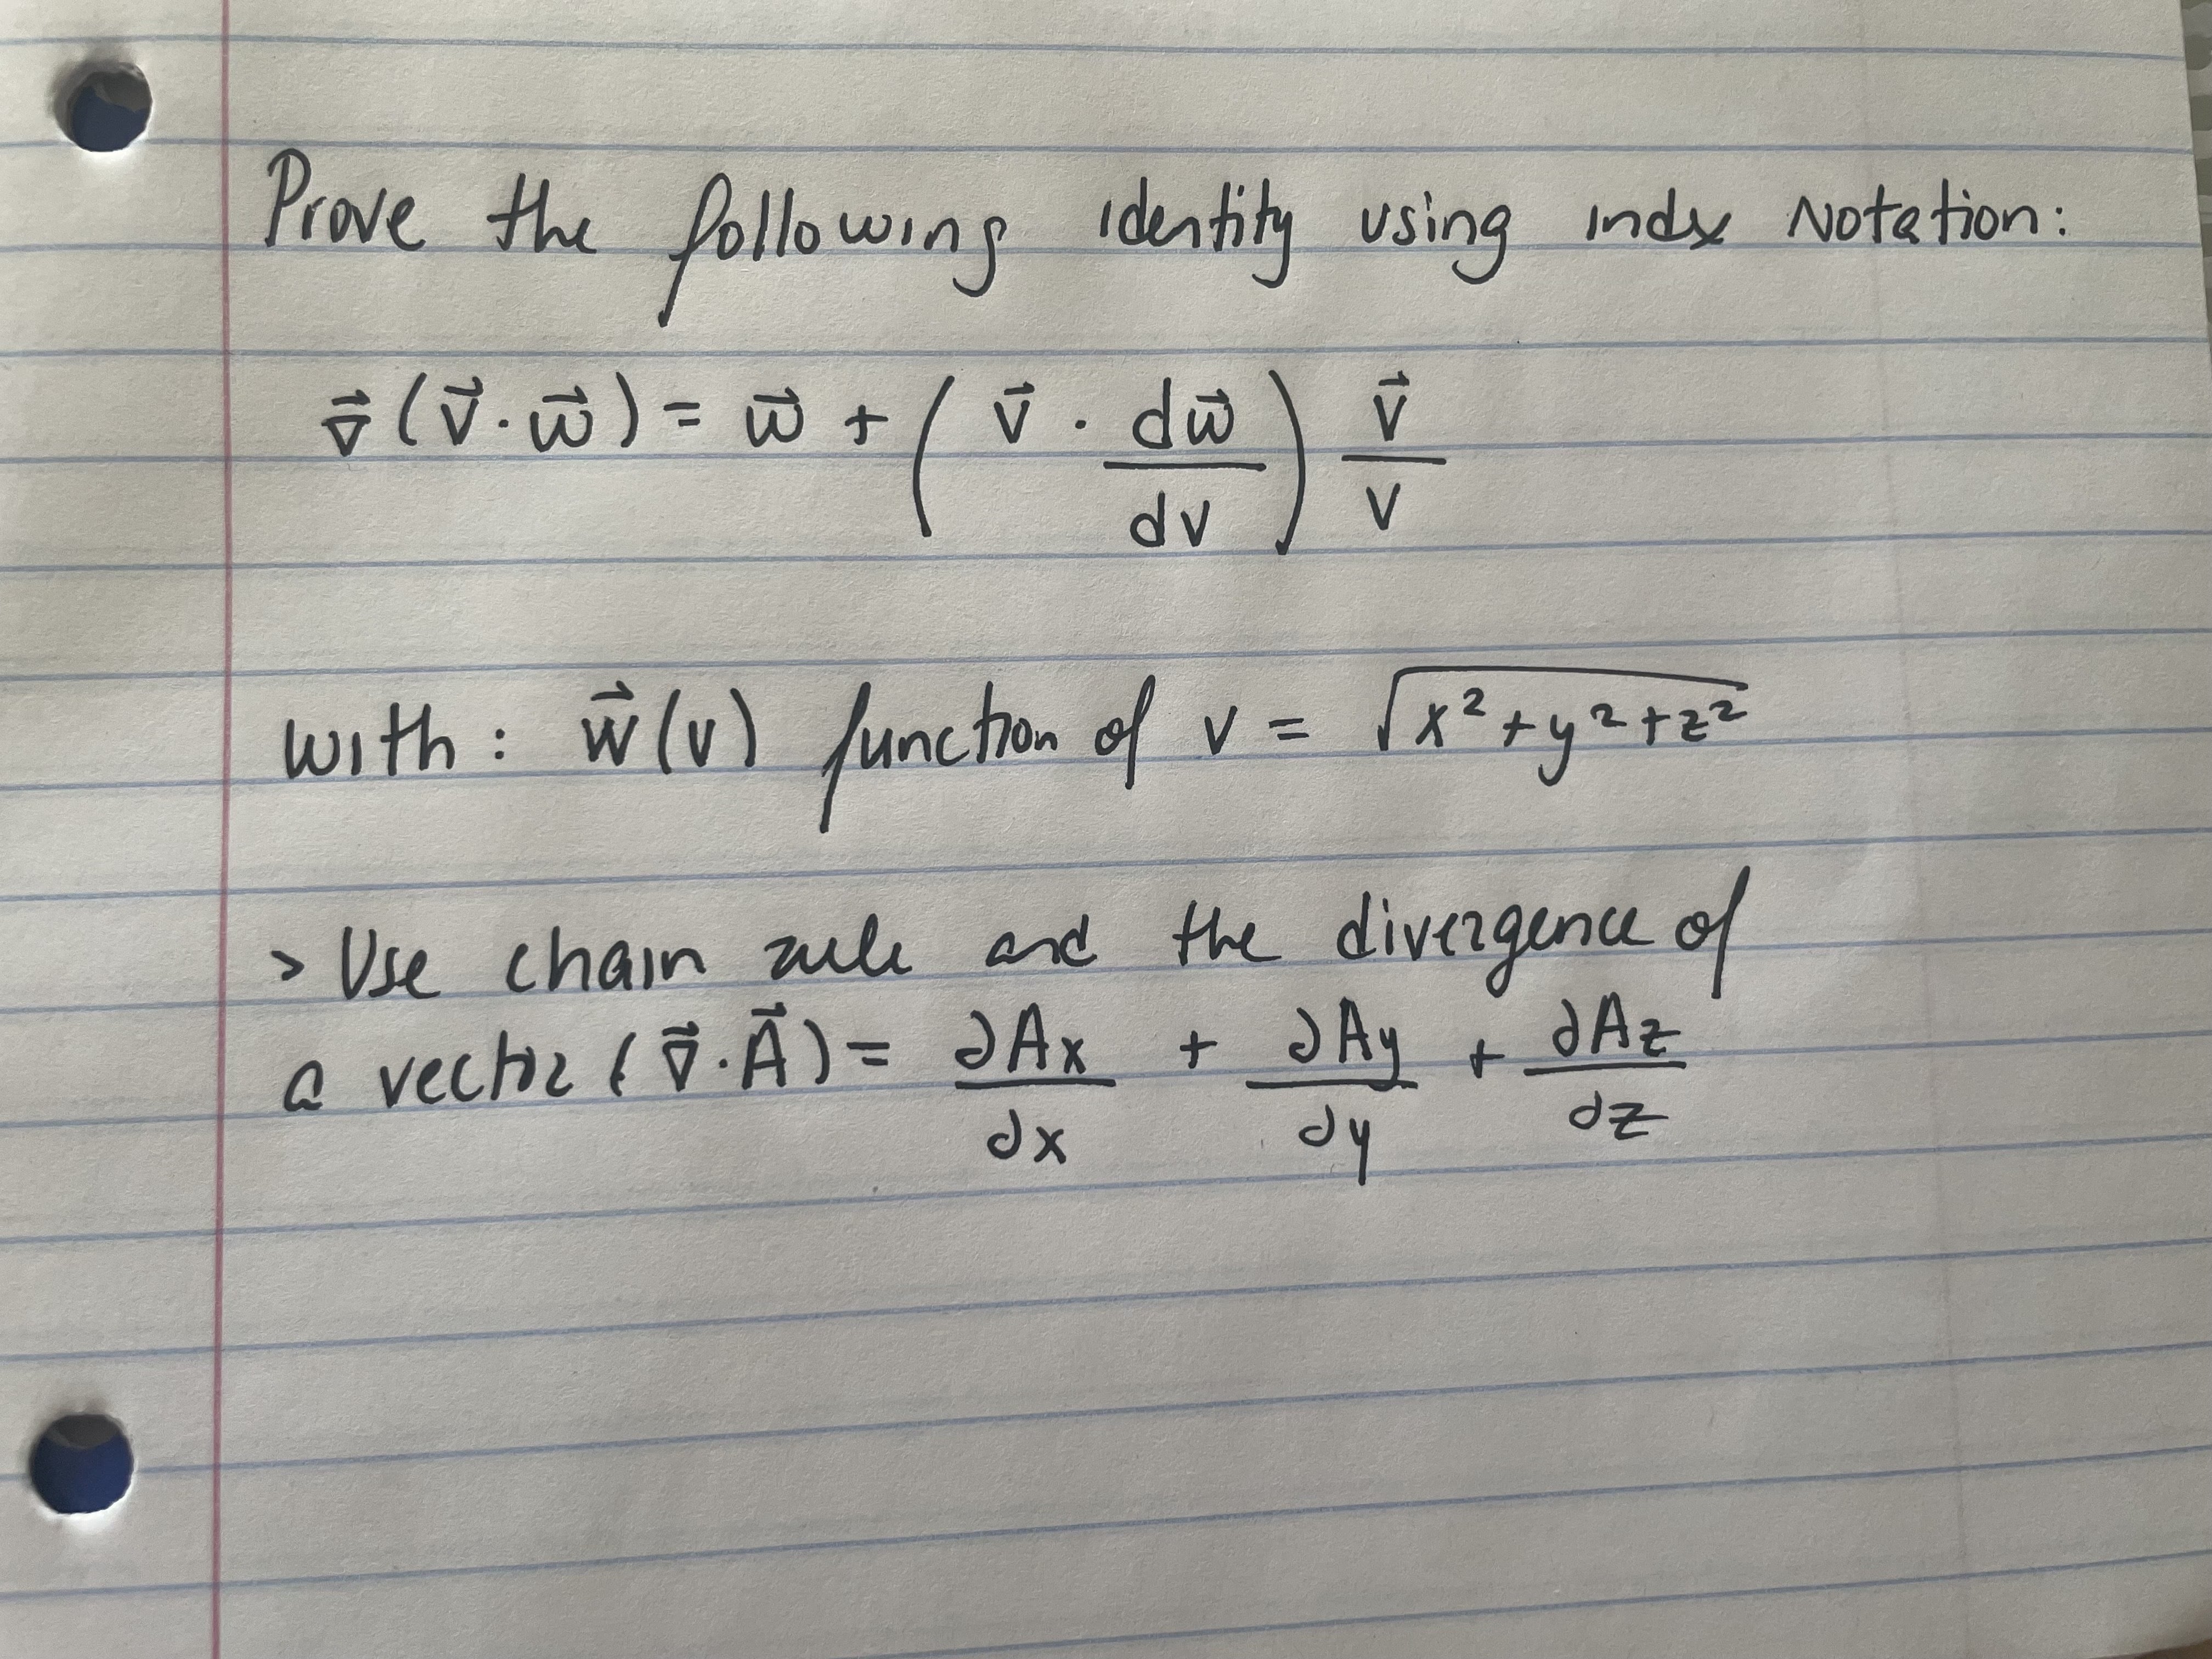 Prove the following identity using indx Notation:
∇⃗(v⃗·w⃗) = w⃗ + (v⃗ · dw⃗/dv) v⃗/v
with: w⃗(v) function of v = √(x²+y²+z²)
> Use chain rule and the divergence of
a vector (∇⃗·A⃗) = ∂Ax/∂x + ∂Ay/∂y + ∂Az/∂z